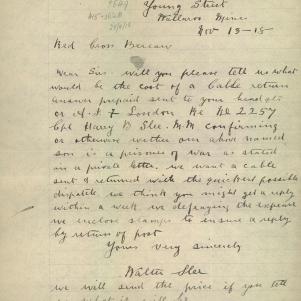 Young Street
Wallaroo Mines
Nov 15-15
Red Cross Bureau
Dear Sir. will you please tell us what
would be the cost of a Cable return
answer prepaid sent to your head
or A.I.F London Re No 2257
Cpl Harry B Slee. M.M confirming
or otherwise wether our above named
son is a prisoner of war as stated
in a private letter, we want a cable
sent & returned with the quickest possible
dispatch we think you might get a reply
within a week we defraying the expense
we enclose stamps to ensure a reply
by return of post
Yours very sincerely
Walter Slee
we will send the price if you tell